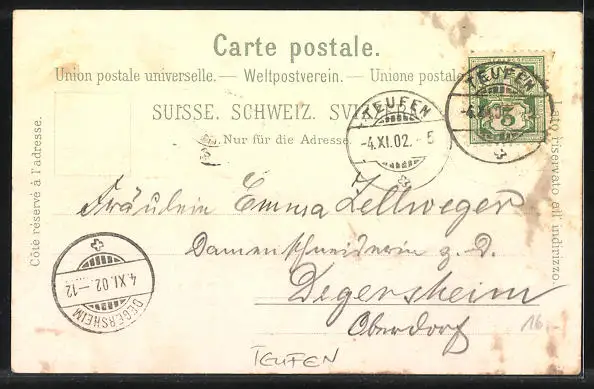 Carte postale.
Union postale universelle. — Weltpostverein. — Unione postale
SUISSE. SCHWEIZ. SVIZZERA.
Nur für die Adresse.
Côté réservé à l'adresse.
Lato riservato all' indirizzo.
TEUFEN
-4.XI.02.-5
TEUFEN
5
Fräulein Emma Zellweger
Damenschneiderin z. D.
Degersheim
Oberdorf
4.XI.02.-12
DEGERSHEIM
16.-
TEUFEN